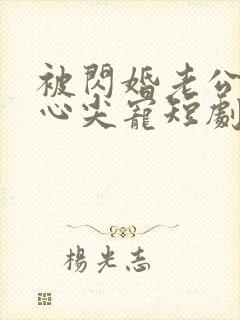 被閃婚老公
心尖寵短劇
楊光志